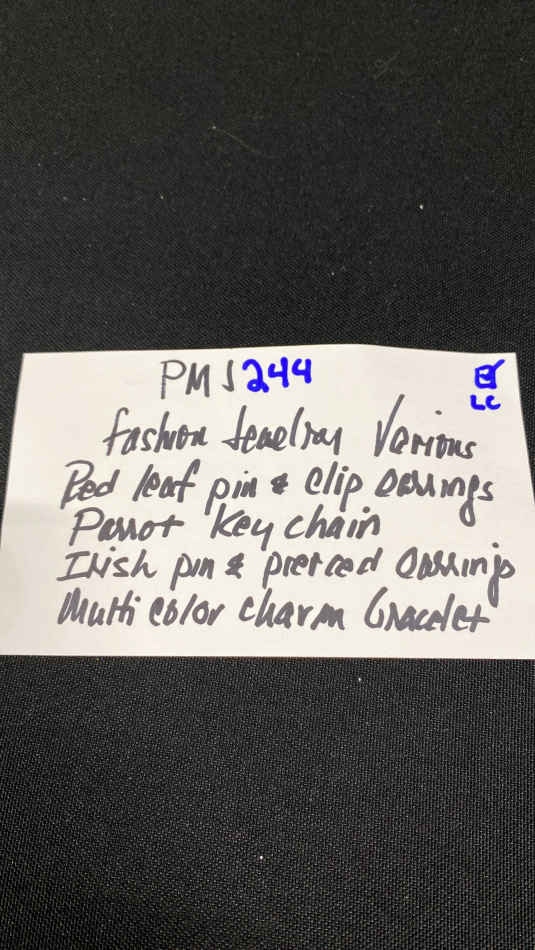 PMJ244
☑
LC
Fashion Jewelry Various
Red leaf pin & Clip earrings
Parrot Key chain
Irish pin & pierced earrings
Multi color charm bracelet